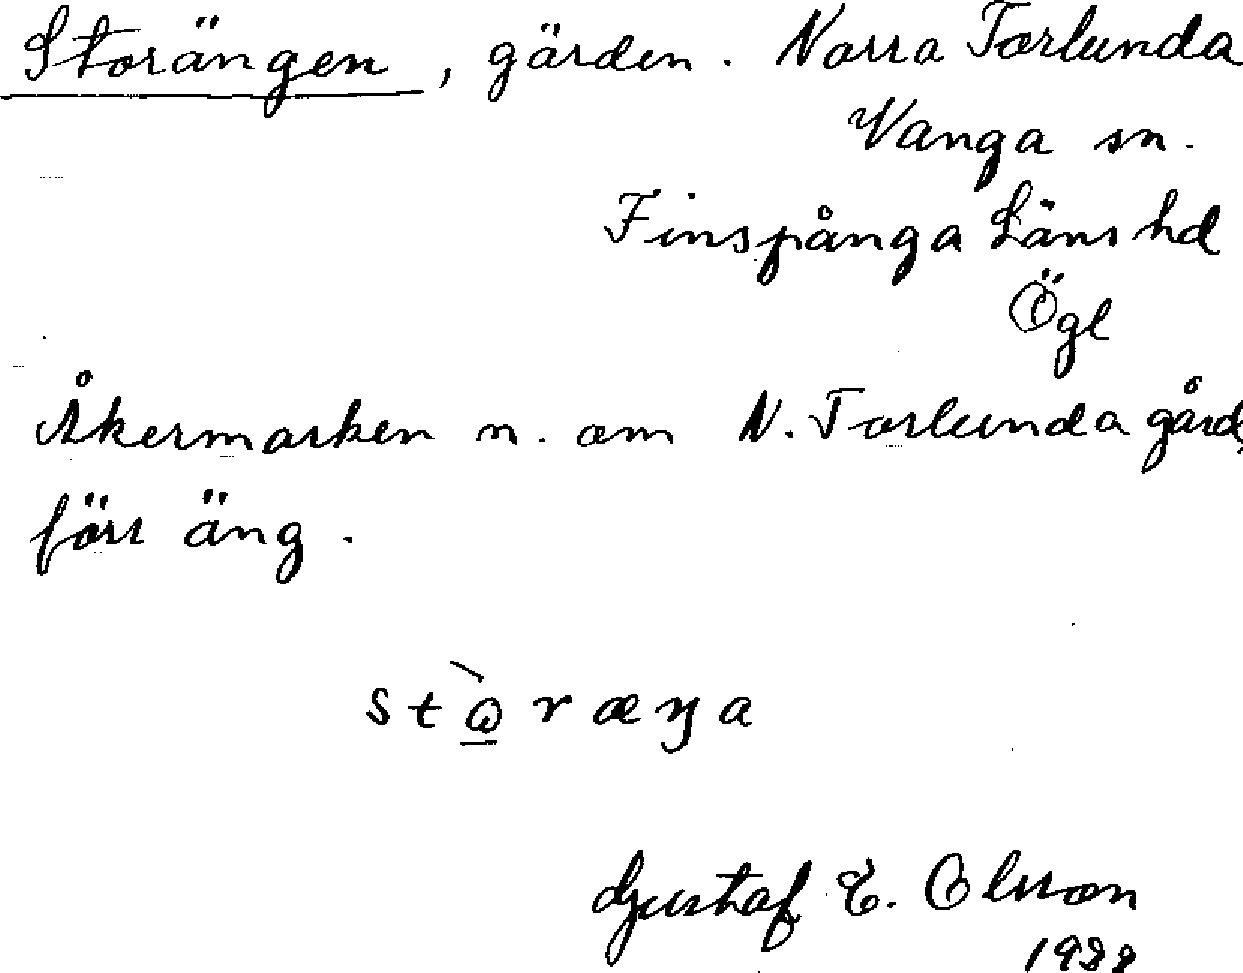 Storängen, gärden. Norra Torlunda
Vanga sn.
Finspånga Läns hd
Ögl
Åkermarken n. om N. Torlunda gård,
förr äng.
Gustaf E. Olsson